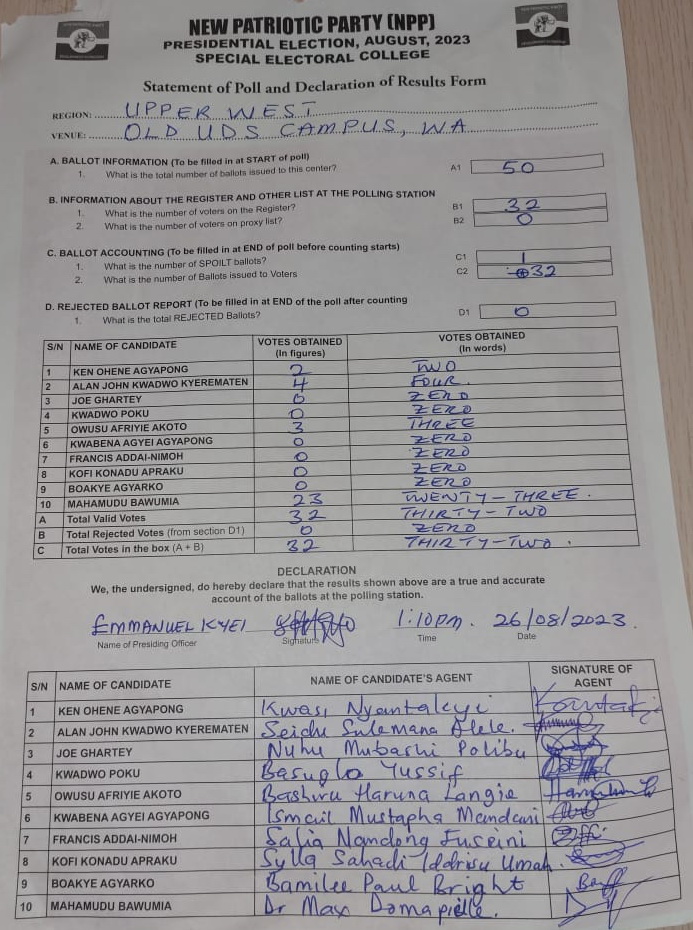 NEW PATRIOTIC PARTY (NPP)
PRESIDENTIAL ELECTION, AUGUST, 2023
SPECIAL ELECTORAL COLLEGE
Statement of Poll and Declaration of Results Form
REGION: UPPER WEST
VENUE: OLD UDS CAMPUS, WA
A. BALLOT INFORMATION (To be filled in at START of poll)
1. What is the total number of ballots issued to this center? A1 50
B. INFORMATION ABOUT THE REGISTER AND OTHER LIST AT THE POLLING STATION
1. What is the number of voters on the Register? B1 32
2. What is the number of voters on proxy list? B2 0
C. BALLOT ACCOUNTING (To be filled in at END of poll before counting starts)
1. What is the number of SPOILT ballots? C1 1
2. What is the number of Ballots issued to Voters C2 32
D. REJECTED BALLOT REPORT (To be filled in at END of the poll after counting
1. What is the total REJECTED Ballots? D1 0
S/N NAME OF CANDIDATE VOTES OBTAINED (In figures) VOTES OBTAINED (In words)
1 KEN OHENE AGYAPONG 2 TWO
2 ALAN JOHN KWADWO KYEREMATEN 4 FOUR
3 JOE GHARTEY 0 ZERO
4 KWADWO POKU 0 ZERO
5 OWUSU AFRIYIE AKOTO 3 THREE
6 KWABENA AGYEI AGYAPONG 0 ZERO
7 FRANCIS ADDAI-NIMOH 0 ZERO
8 KOFI KONADU APRAKU 0 ZERO
9 BOAKYE AGYARKO 0 ZERO
10 MAHAMUDU BAWUMIA 23 TWENTY-THREE.
A Total Valid Votes 32 THIRTY-TWO
B Total Rejected Votes (from section D1) 0 ZERO
C Total Votes in the box (A + B) 32 THIRTY-TWO.
DECLARATION
We, the undersigned, do hereby declare that the results shown above are a true and accurate
account of the ballots at the polling station.
EMMANUEL KYEI 1:10pm. 26/08/2023.
Name of Presiding Officer Signature Time Date
S/N NAME OF CANDIDATE NAME OF CANDIDATE'S AGENT SIGNATURE OF AGENT
1 KEN OHENE AGYAPONG Kwasi Nyantakyi
2 ALAN JOHN KWADWO KYEREMATEN Seidu Sulemana
3 JOE GHARTEY Nuhu Mubashi Polibu
4 KWADWO POKU Basugla Yussif
5 OWUSU AFRIYIE AKOTO Bashiru Haruna Langie
6 KWABENA AGYEI AGYAPONG Ismail Mustapha Mamdani
7 FRANCIS ADDAI-NIMOH Salia Nandong Fuseini
8 KOFI KONADU APRAKU Sylla Sahadi Iddrisu Umah.
9 BOAKYE AGYARKO Bamilee Paul Bright
10 MAHAMUDU BAWUMIA Dr Max Domapielle.